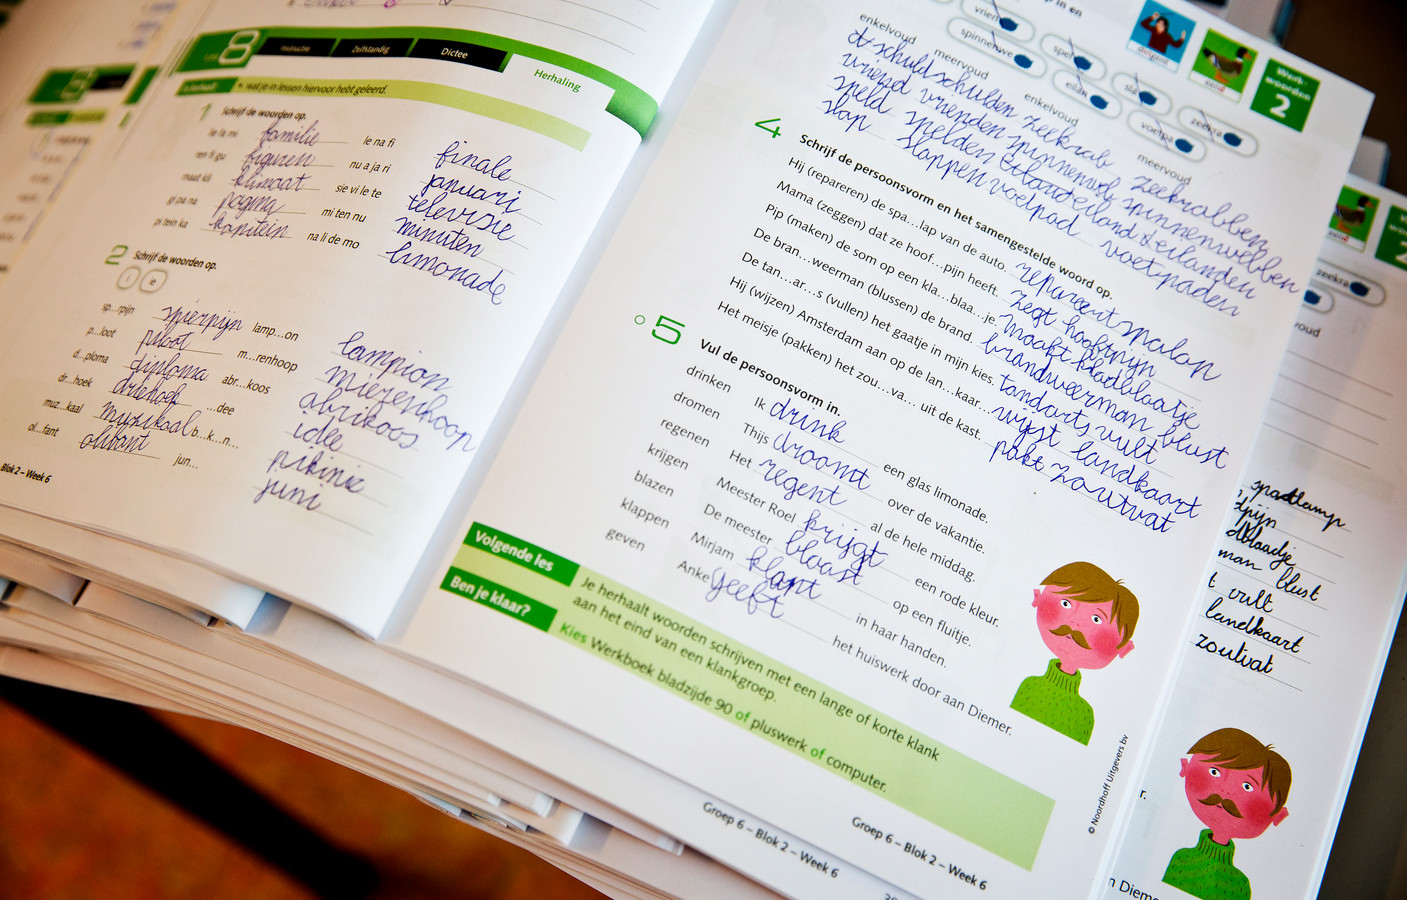 8 Instructie Zelfstandig Dictee Herhaling
wat je in lessen hiervoor hebt geleerd.
1 Schrijf de woorden op.
le fa mi familie le na fi finale
ren fi gu figuren nu a ja ri januari
maat kli klimaat sie vi le te televisie
gi pa na pagina mi ten nu minuten
pi tein ka kapitein na li de mo limonade
2 Schrijf de woorden op.
i ie
sp...rpijn spierpijn lamp...on lampion
p...loot piloot m...renhoop mierenhoop
d...ploma diploma abr...koos abrikoos
dr...hoek driehoek ...dee idee
muz...kaal muzikaal b...k...n...
ol...fant olifant jun... juni
Blok 2 – Week 6
vriend
spinnenwe speld
eilan sla
voetpa zeekra
dirigent eend
Werk-
woorden
2
enkelvoud meervoud enkelvoud meervoud
schuld schulden zeekrab zeekrabben
vriend vrienden spinnenweb spinnenwebben
speld spelden eiland eilanden
slap slappen voetpad voetpaden
4 Schrijf de persoonsvorm en het samengestelde woord op.
Hij (repareren) de spa...lap van de auto. repareert
Mama (zeggen) dat ze hoof...pijn heeft. zegt hoofdpijn
Pip (maken) de som op een kla...blaa...je. maakt kladblaatje
De bran...weerman (blussen) de brand. brandweerman blust
De tan...ar...s (vullen) het gaatje in mijn kies. tandarts vult
Hij (wijzen) Amsterdam aan op de lan...kaar... wijst landkaart
Het meisje (pakken) het zou...va... uit de kast. pakt zoutvat
5 Vul de persoonsvorm in.
drinken Ik drink een glas limonade.
dromen Thijs droomt over de vakantie.
regenen Het regent al de hele middag.
krijgen Meester Roel krijgt een rode kleur.
blazen De meester blaast op een fluitje.
klappen Mirjam klapt in haar handen.
geven Anke geeft het huiswerk door aan Diemer.
Volgende les Je herhaalt woorden schrijven met een lange of korte klank
aan het eind van een klankgroep.
Ben je klaar? Kies Werkboek bladzijde 90 of pluswerk of computer.
© Noordhoff Uitgevers bv
Groep 6 – Blok 2 – Week 6
Groep 6 – Blok 2 – Week 6
zeekra
voud
man blust
vult
landkaart
zoutvat
r.
n Diemer